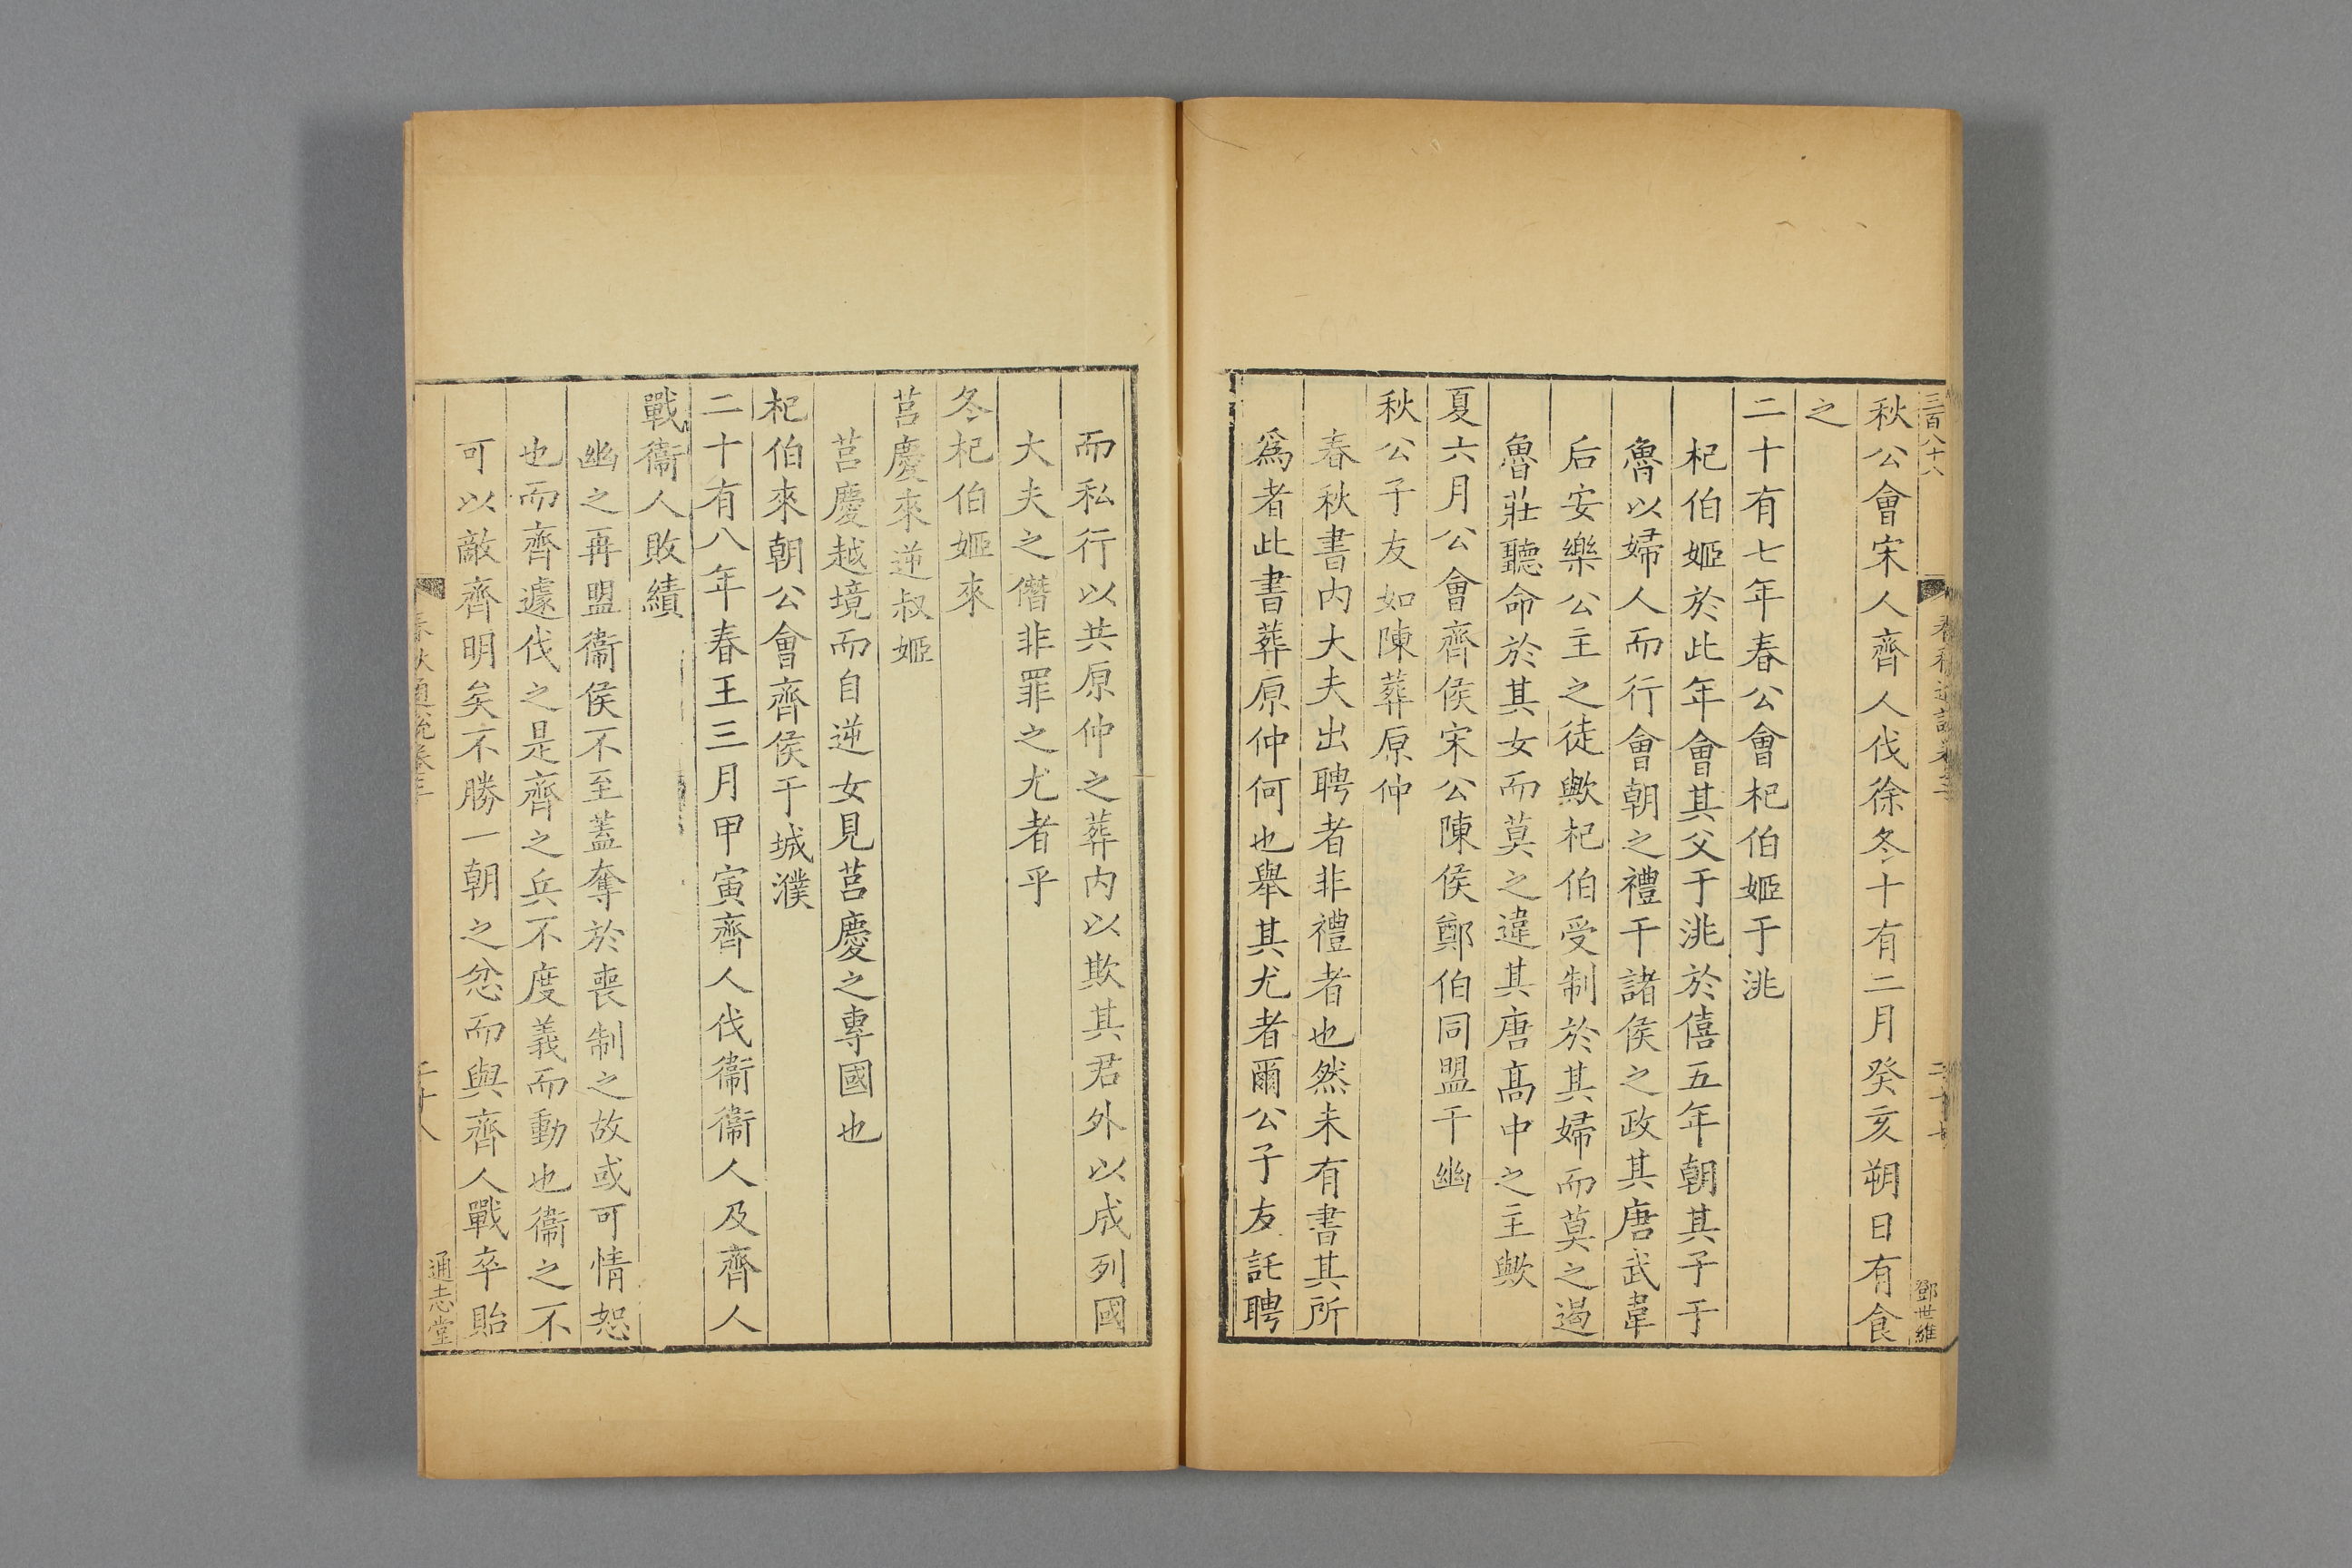 三百八十八
春秋通說卷三
二十七
鄧世維
秋公會宋人齊人伐徐冬十有二月癸亥朔日有食
之
二十有七年春公會杞伯姬于洮
杞伯姬於此年會其父于洮於僖五年朝其子于
魯以婦人而行會朝之禮干諸侯之政其唐武韋
后安樂公主之徒歟杞伯受制於其婦而莫之遏
魯莊聽命於其女而莫之違其唐高中之主歟
夏六月公會齊侯宋公陳侯鄭伯同盟于幽
秋公子友如陳葬原仲
春秋書内大夫出聘者非禮者也然未有書其所
爲者此書葬原仲何也舉其尤者爾公子友託聘
而私行以共原仲之葬内以欺其君外以成列國
大夫之僭非罪之尤者乎
冬杞伯姬來
莒慶來逆叔姬
莒慶越境而自逆女見莒慶之專國也
杞伯來朝公會齊侯于城濮
二十有八年春王三月甲寅齊人伐衞衞人及齊人
戰衞人敗績
幽之再盟衞侯不至蓋奪於喪制之故或可情恕
也而齊遽伐之是齊之兵不度義而動也衞之不
可以敵齊明矣不勝一朝之忿而與齊人戰卒貽
春秋通說卷三
二十八
通志堂